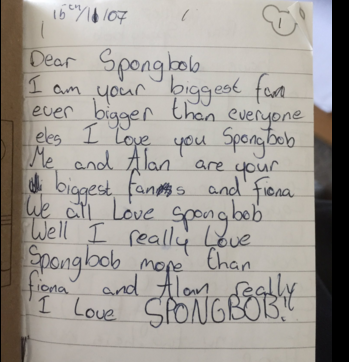 16th/11/07
1
Dear Spongbob
I am your biggest fan
ever bigger than everyone
eles I Love you Spongbob
Me and Alan are your
biggest fans and fiona
We all Love spongbob
Well I really Love
Spongbob more than
fiona and Alan really
I Love SPONGBOB!!